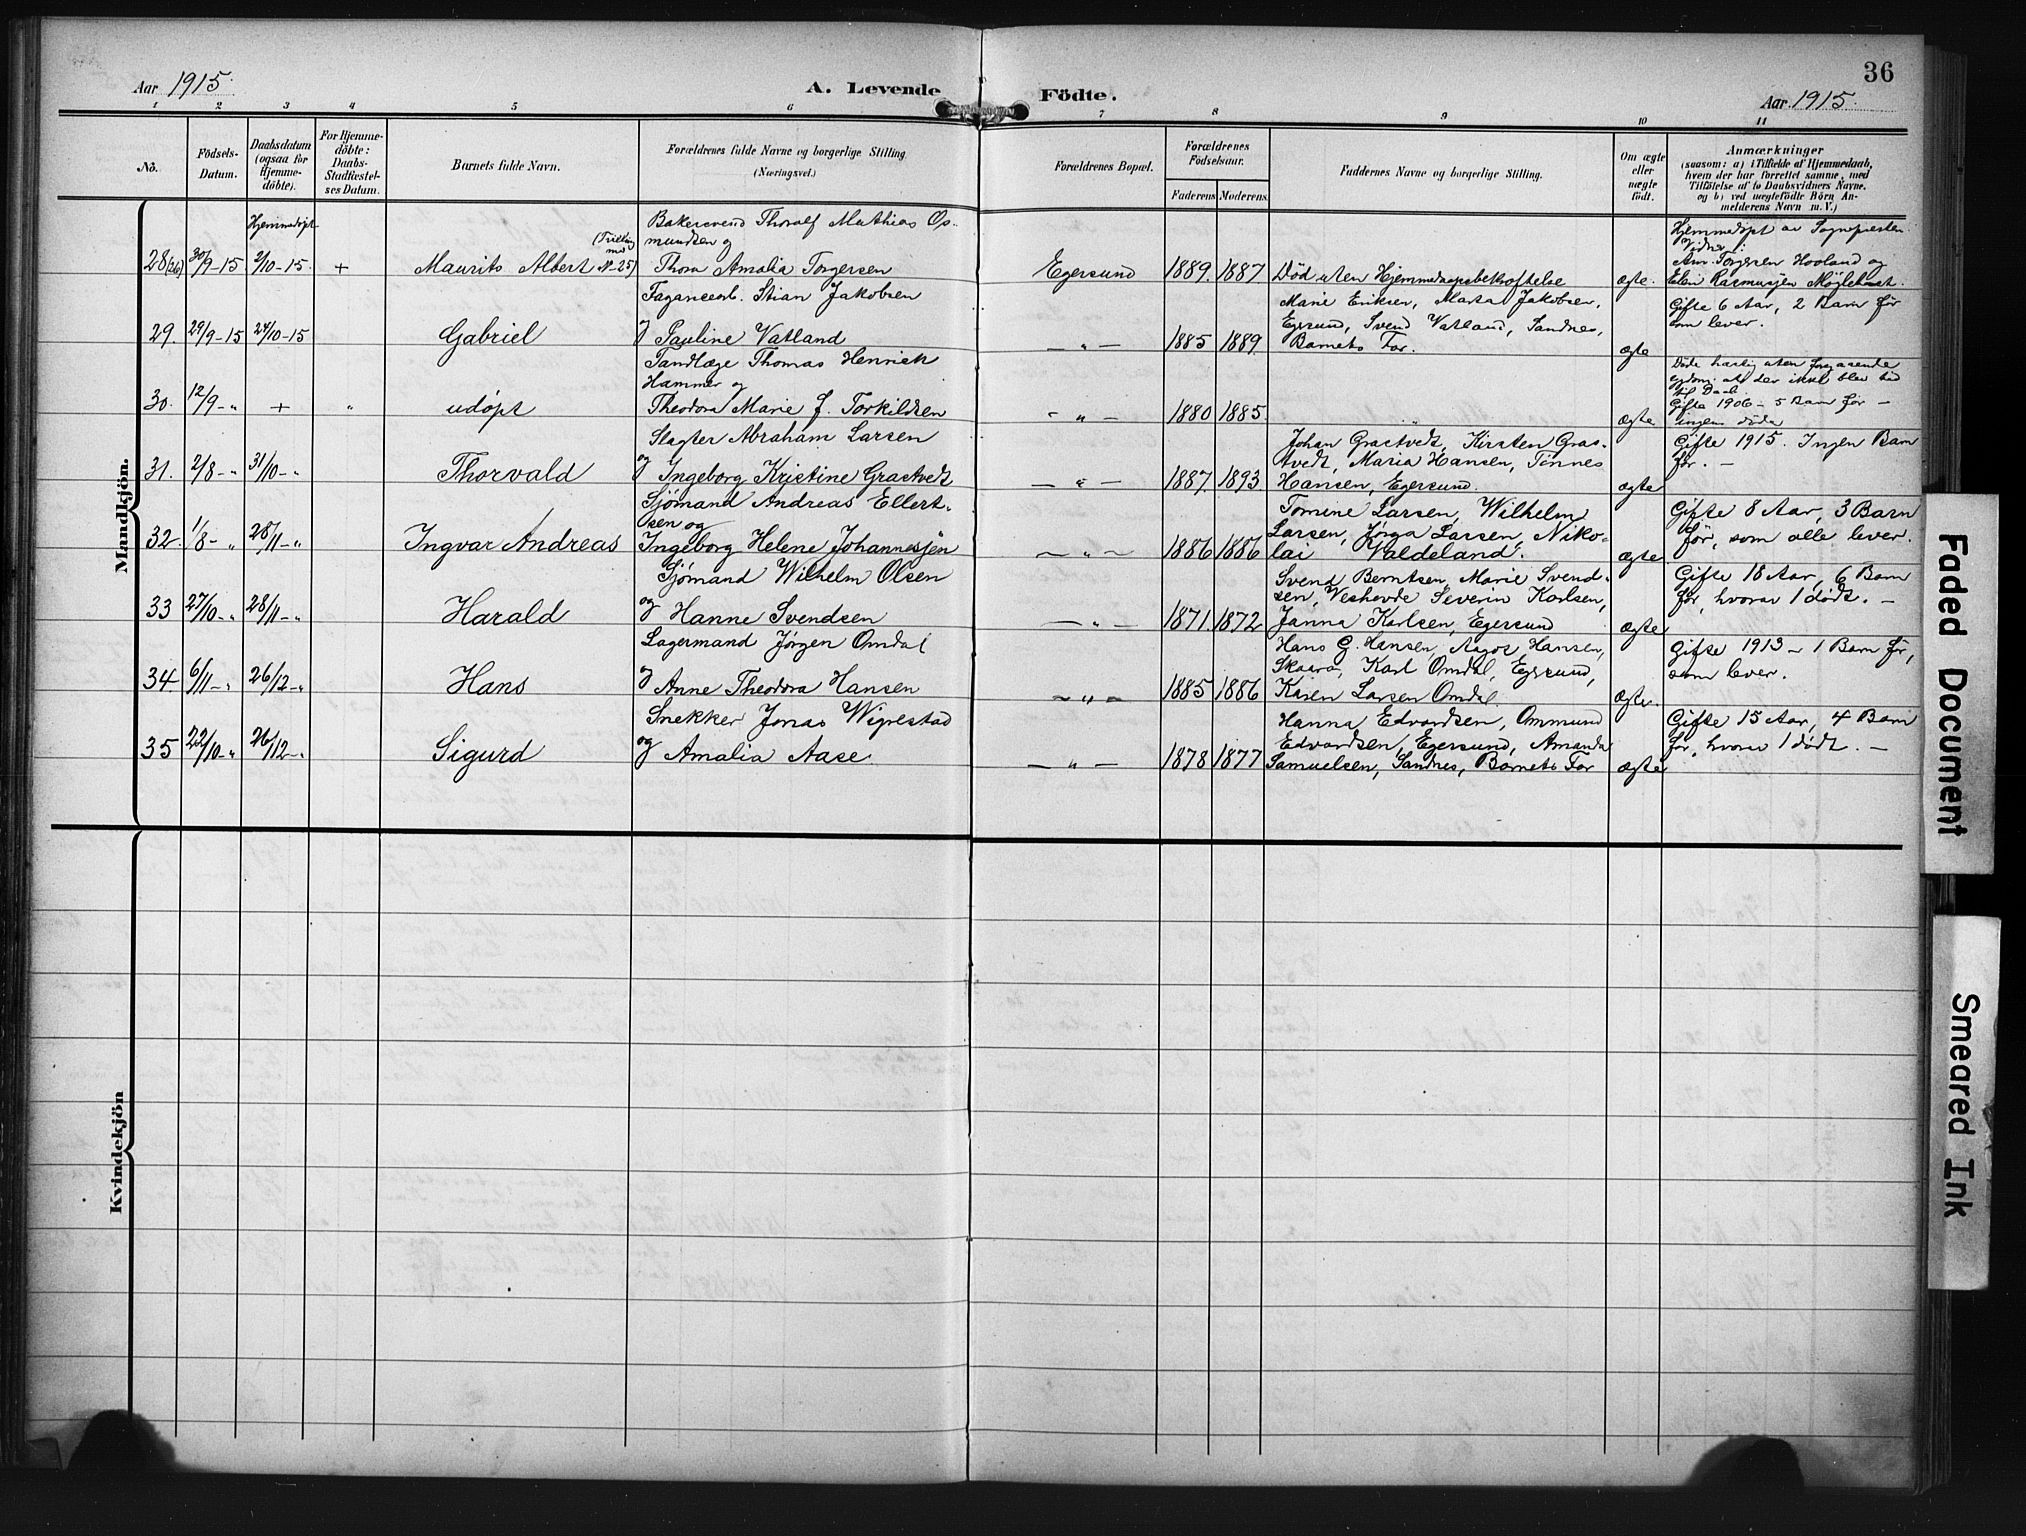 36
Aar 1915.
A. Levende
Födte.
Aar 1915.
1 2 3 4 5 6 7 8 9 10 11
No.
Födsels-
Datum.
Daabsdatum
(ogsaa for
Hjemme-
döbte).
For Hjemme-
döbte:
Daabs-
Stadfæstel-
ses Datum.
Barnets fulde Navn.
Forældrenes fulde Navne og borgerlige Stilling
(Næringsvei.)
Forældrenes Bopæl.
Forældrenes
Födselsaar.
Faderens Moderens
Faddernes Navne og borgerlige Stilling.
Om ægte
eller
uægte
födt.
Anmærkninger
(saasom: a) i Tilfælde af Hjemmedaab,
hvem der har forrettet samme, med
Tilföielse af to Daabsvidners Navne.
og b) ved uægtefödte Börn An-
melderens Navn m. V.)
Mandkjön.
Hjemmedøpt
28(26) 30/9-15 2/10-15. + Maurits Albert (Trilling med N-25)
Bakersvend Thoralf Mathias Os-
mundsen og
Thora Amalia Torgersen
Egersund 1889. 1887 Død uten Hjemmedaapsbekræftelse ægte.
Hjemmedøpt av Sognepresten
Vidner:
Torgersen Hovland og
Elen Rasmusen
29. 29/9-15 24/10-15 Gabriel
Stian Jakobsen
og Pauline Vatland
— „ — 1885 1889.
Marie Eriksen, Marta Jakobsen,
Egersund, Svend Vatland, Sandnes,
Barnets Far.
ægte
Gifte 6 Aar, 2 Barn før
som lever.
30. 12/9-„ + „ udøpt
Tandlæge Thomas Henrick
Hammer og
Theodora Marie J. Torkildsen
— „ — 1880 1885.
ægte
Døde hastig uten foregaaende
sygdom at der ikke blev tid
til Daab.
Gifte 1906 – 5 Barn før –
ingen døde
31. 2/8-„ 31/10-„ Thorvald
Slagter Abraham Larsen
og Ingeborg Kristine Grastvedt
— „ — 1887. 1893.
Johan Grastvedt, Kirsten Gras-
tvedt, Maria Hansen, Tønnes
Hansen, Egersund.
ægte
Gifte 1915. Ingen Barn
før. —
32. 1/8-„ 28/11-„ Ingvar Andreas
Sjømand Andreas Ellert-
sen og
Ingeborg Helene Johannesjen
— „ — 1886 1886
Tomine Larsen, Wilhelm
Larsen, Jørga Larsen, Niko-
lai Valdeland.
ægte.
Gifte 8 Aar, 3 Barn
før, som alle lever.
33 27/10-„ 28/11-„ Harald
Sjømand Wilhelm Olsen
og Hanne Svendsen
— „ — 1871. 1872
Svend Berntsen, Marie Svend-
sen, Severin Karlsen,
Janna Karlsen, Egersund
ægte
Gifte 18 Aar, 6 Barn
før, hvorav 1 dødt. —
34. 6/11-„ 26/12-„ Hans
Lagermand Jørgen Omdal
og Anne Theodora Hansen
— „ — 1885 1886
Hans G. Hansen, Aagot Hansen,
Skaara, Karl Omdal, Egersund,
Karen Larsen Omdal.
ægte.
Gifte 1913 – 1 Barn før,
som lever.
35 22/10-„ 26/12-„ Sigurd
Snekker Jonas Wigrestad
og Amalia Aase.
— „ — 1878 1877
Hanna Edvardsen, Ommund
Edvardsen, Egersund, Amanda
Samuelsen, Sandnes, Barnets Far
ægte
Gifte 15 Aar, 4 Barn
før, hvorav 1 dødt. —
Kvindekjön
Faded Document
Smeared Ink